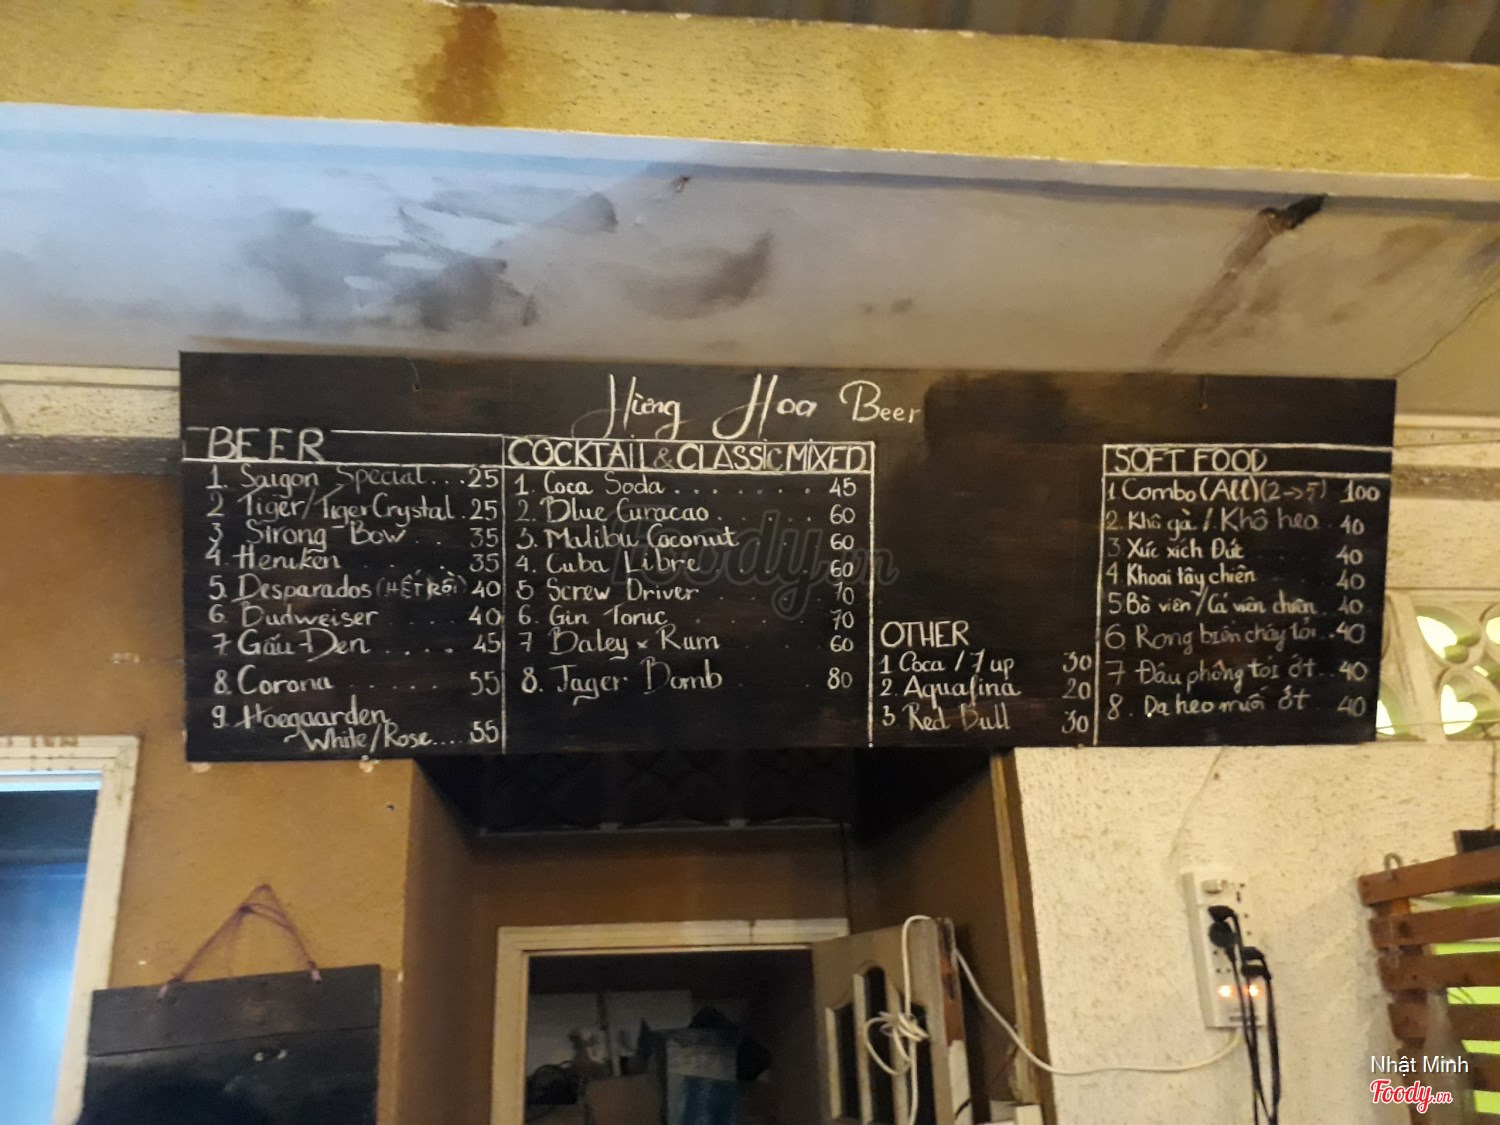 Hừng Hoa Beer
BEER
1. Saigon Special...25
2 Tiger/Tiger Crystal..25
3 Strong Bow.. 35
4. Heniken.... 35
5. Desparados (HẾT RỒI) 40
6. Budweiser 40
7 Gấu Đen .... 45
8. Corona ...... 55
9. Hoegaarden
White/Rose.... 55
COCKTAIL & CLASSIC MIXED
1. Coca Soda....... 45
2. Blue Curacao...... 60
3. Malibu Coconut 60
4. Cuba Libre 60
5 Screw Driver 70
6. Gin Tonic 70
7 Baley x Rum 60
8. Jager Bomb 80
OTHER
1 Coca / 7 up 30
2. Aquafina 20
3. Red Bull 30
SOFT FOOD
1 Combo (All) (2->5) 100
2. Khô gà / Khô heo 40
3. Xúc xích Đức 40
4. Khoai tây chiên 40
5. Bò viên / Cá viên chiên 40
6 Rong biển cháy tỏi..40
7 Đậu phộng tỏi ớt..40
8. Da heo muối ớt 40
Foody.vn
Nhật Minh
Foody.vn